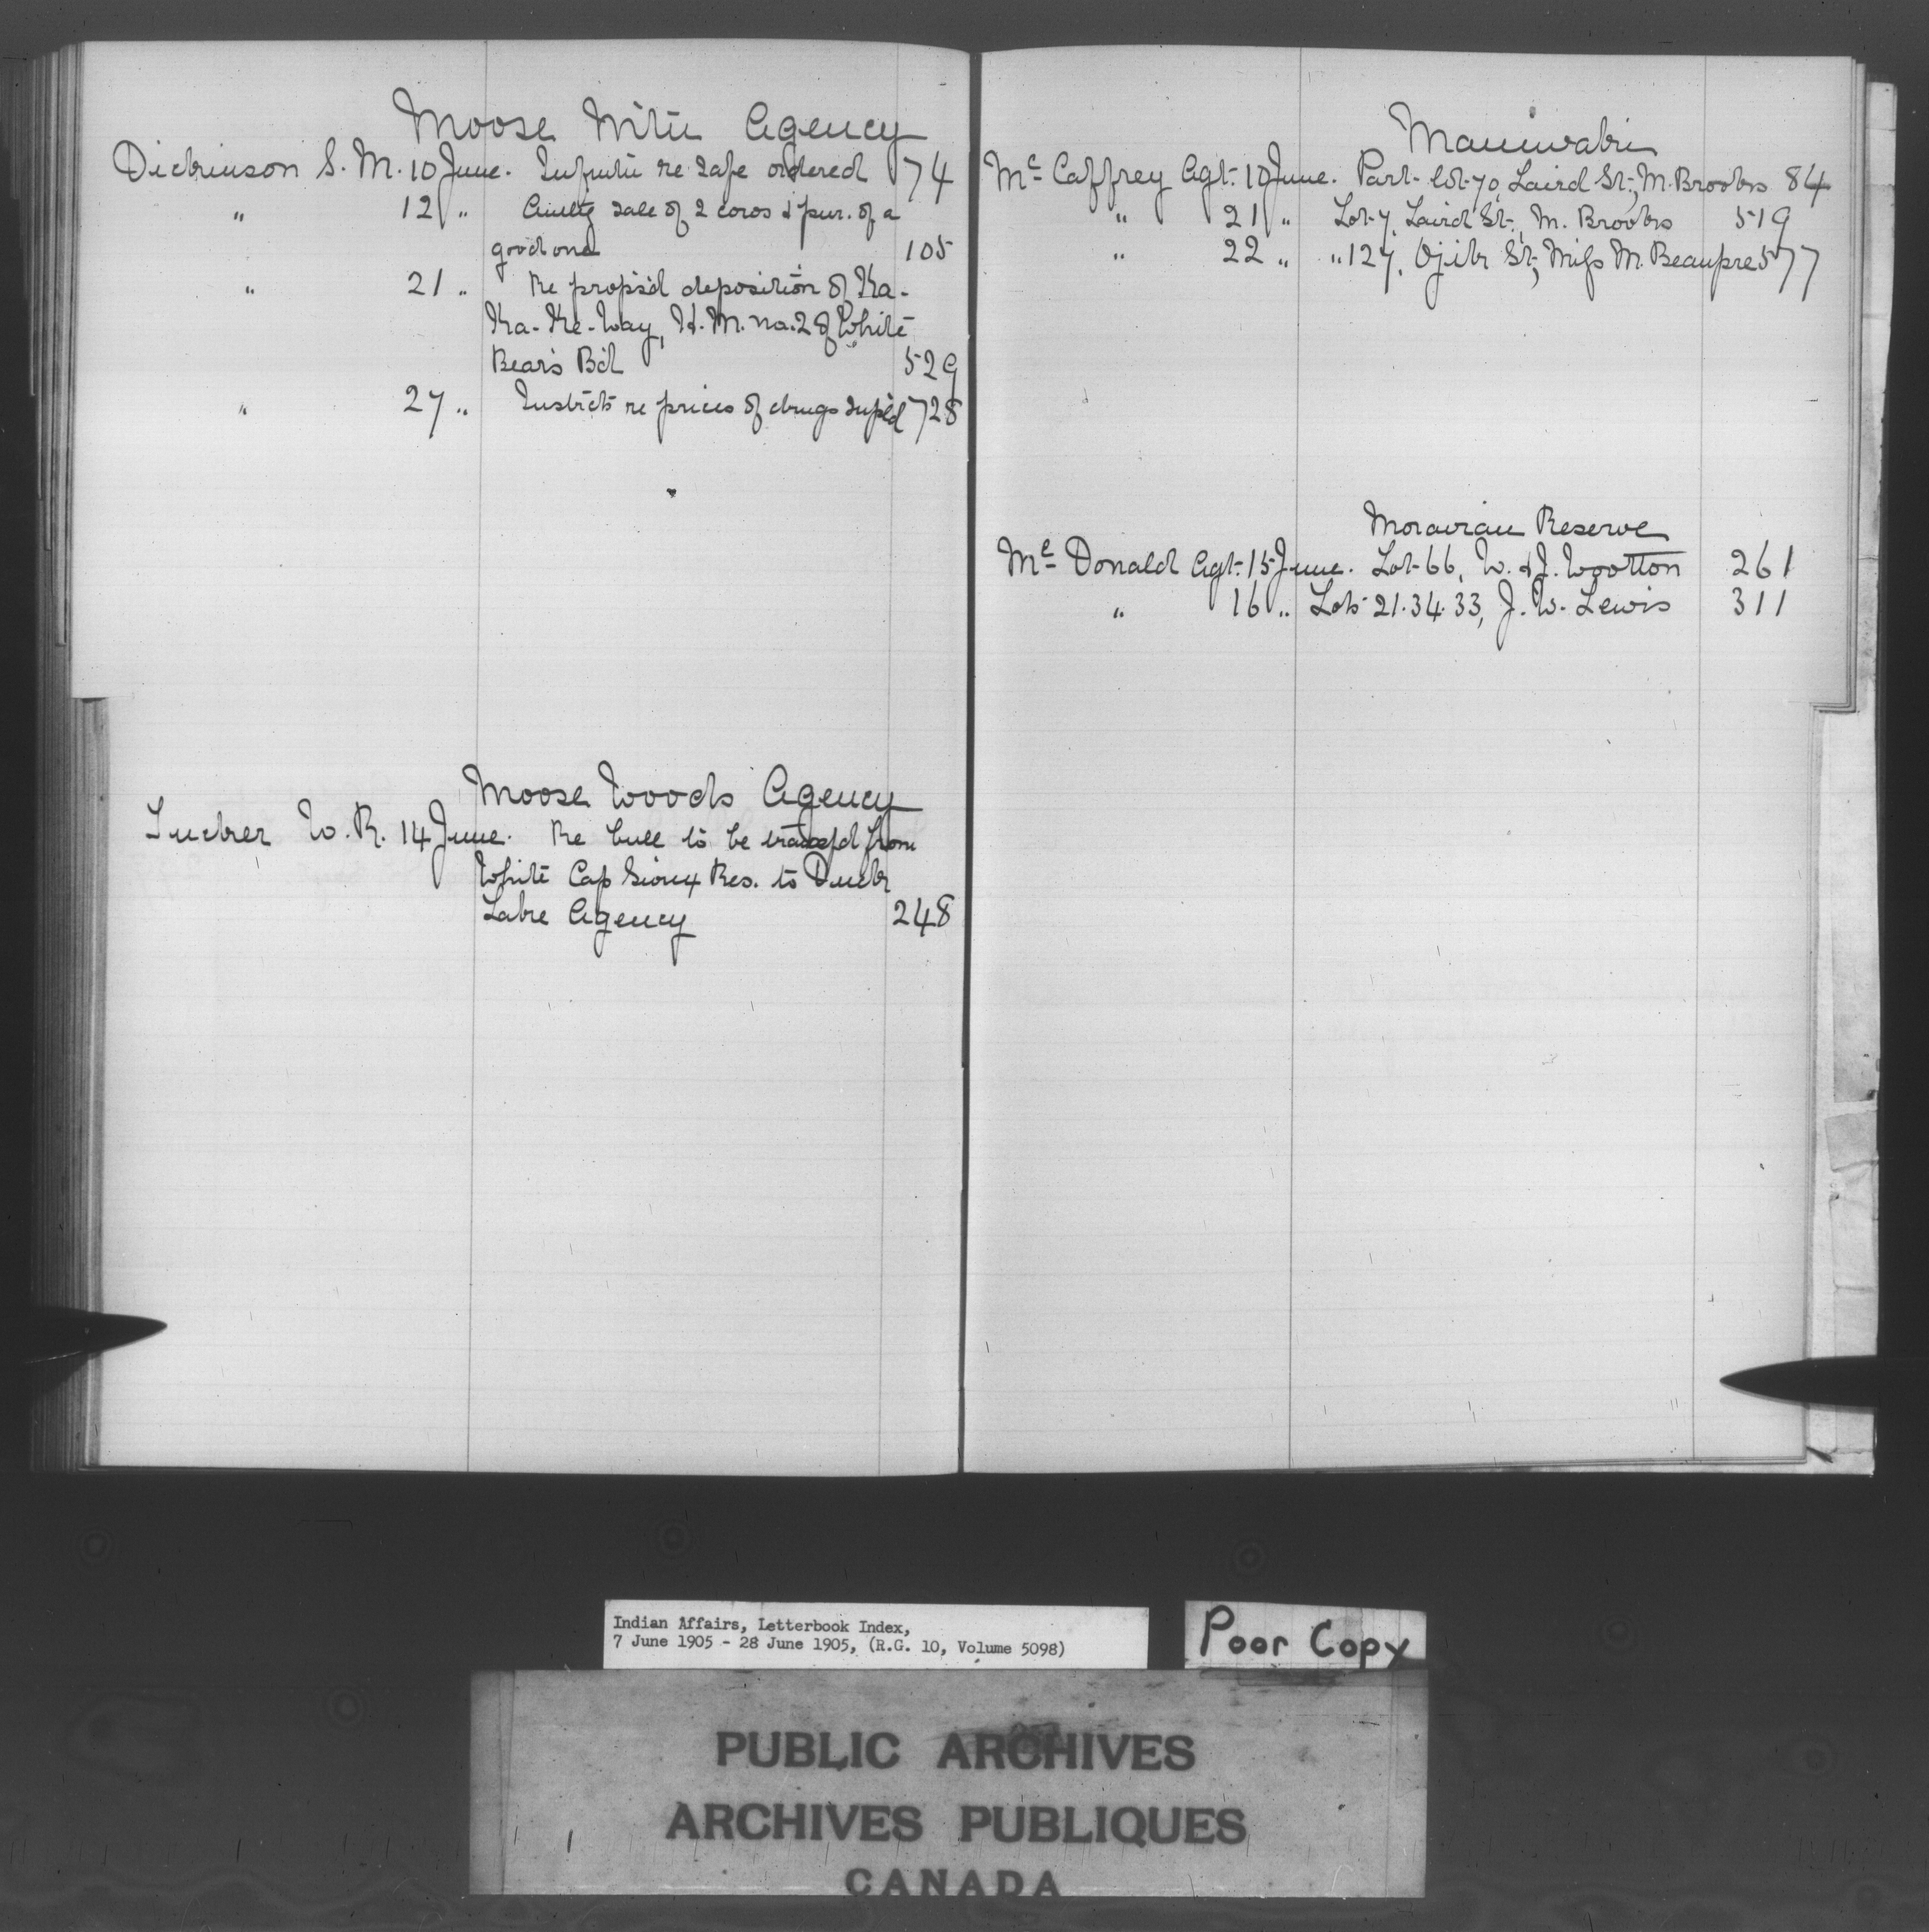 Moose Mtn Agency
Dickinson S. M. 10 June. Infmtn re safe ordered 74
" 12 " Authg sale of 2 cows & pur. of a
good one 105
" 21 " Re propsd deposition of Ka-
Ka-Ke-Way, H.M. no. 28 White
Bear's Bd 529
" 27 " Instrcts re prices of drugs supld 728
Moose Woods Agency
Tucker W. R. 14 June. Re bull to be transfd from
White Cap Sioux Res. to Duck
Lake Agency 248
Maniwaki
McCaffrey Agt. 10 June. Part lot 70, Laird St., M. Brooks 84
" 21 " Lot 7, Laird St., M. Brooks 519
" 22 " " 127, Ojibr St., Miss M. Beaupre 577
Moravian Reserve
McDonald Agt. 15 June. Lot 66, W. & J. Wootton 261
" 16 " Lots 21.34.33, J. W. Lewis 311
Indian Affairs, Letterbook Index,
7 June 1905 - 28 June 1905, (R.G. 10, Volume 5098)
Poor Copy
PUBLIC ARCHIVES
ARCHIVES PUBLIQUES
CANADA